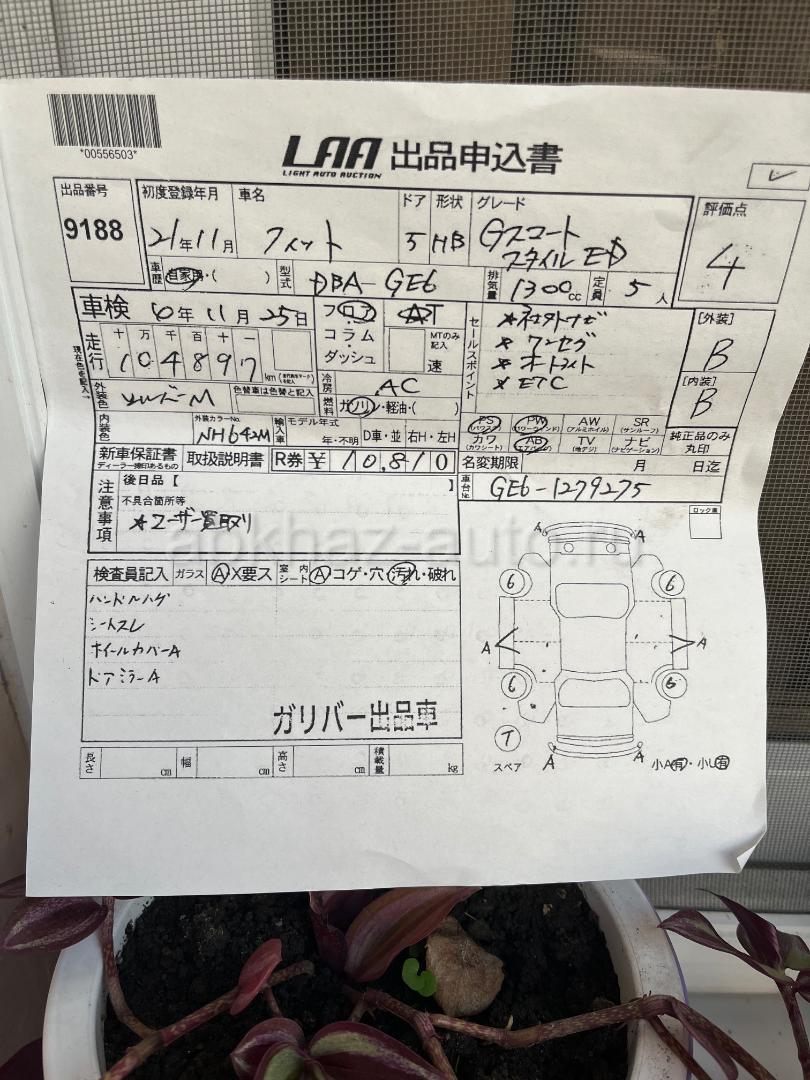 *00556503*
LAA 出品申込書
LIGHT AUTO AUCTION
出品番号
9188
初度登録年月
21年11月
車名
フィット
ドア
5
形状
HB
グレード
Gスマート
スタイルED
評価点
4
車歴
自家用・( )
型式
DBA-GE6
排気量
1300cc
定員
5人
車検
6年11月25日
フロア
コラム
ダッシュ
AT
MTのみ記入
速
セールスポイント
★社外ナビ
★ワンセグ
★オートライト
★ETC
[外装]
B
[内装]
B
走行
十万千百十一
104897
km
現在色を記入
冷房
AC
燃料
ガソリン・軽油・( )
外装色
シルバーM
色替車は色替と記入
内装色
外装カラーNo.
NH642M
輸入車
モデル年式
年・不明
D車・並
右H・左H
PS
(パワステ)
PW
(パワーウィンド)
AW
(アルミホイル)
SR
(サンルーフ)
カワ
(カワシート)
AB
(エアバッグ)
TV
(地デジ)
ナビ
(ナビゲーション)
純正品のみ
丸印
新車保証書
ディーラー捺印あるもの
取扱説明書
R券 ¥ 10,810
名変期限
月 日迄
車台No.
GE6-1279275
注意事項
後日品【 】
不具合箇所等
★ユーザー買取り
ロック車
abkhaz-auto.ru
検査員記入
ガラス A X要ス
室内シート A コゲ・穴・汚れ・破れ
ハンドルハゲ
シートスレ
ホイールカバーA
ドアミラーA
ガリバー出品車
長さ cm 幅 cm 高さ cm 積載量 kg
A A
6 6
A A
6 6
T
スペア
A A
小A有・小U有